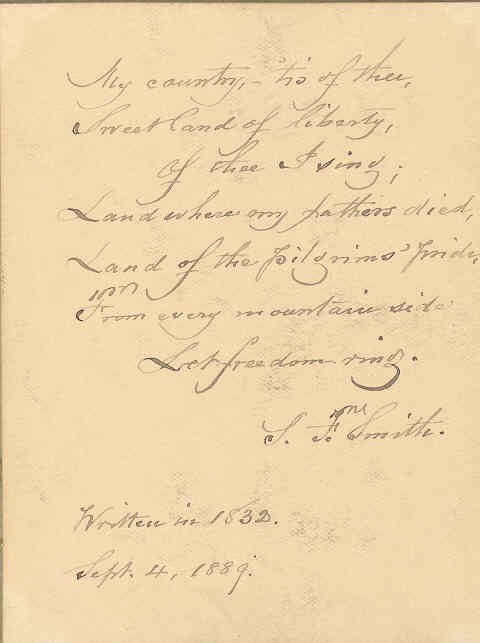 My country, – 'tis of thee,
Sweet land of liberty,
Of thee I sing;
Land where my fathers died,
Land of the pilgrims' pride,
From every mountain side
Let freedom ring.
S. F. Smith.
Written in 1832.
Sept. 4, 1889.